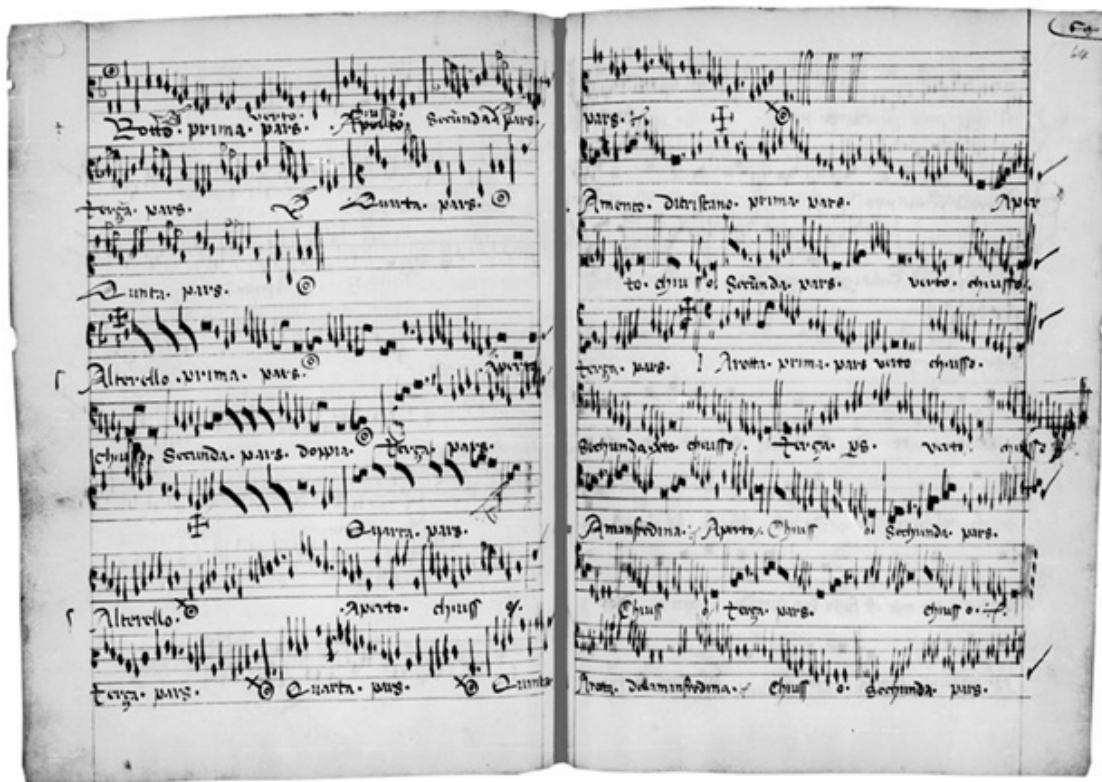 verto. chiuso.
Botto. prima. pars. Aperto. Secunda. pars.
terza. pars. Quarta. pars.
Quinta. pars.
Alterello. prima. pars. Aperto
chiuss Secunda. pars. doppia. terza pars.
Quarta. pars.
Alterello. Aperto. chiuss o.
terza. pars. Quarta. pars. Quinta
pars.
Amento. ditristano. prima. pars. Aper
to. chiusso. Secunda. pars. verto. chiusso.
terza. pars. Arotta. prima. pars verto chiusso.
Sechunda. chiusso. terza. ps. verto. chiusso
Amanfredina. Aperto. Chiuss o. Sechunda. pars.
Chiuss o. terza. pars. chiuss o.
Arotta. delamanfredina. Chiuss o. Sechunda. pars.